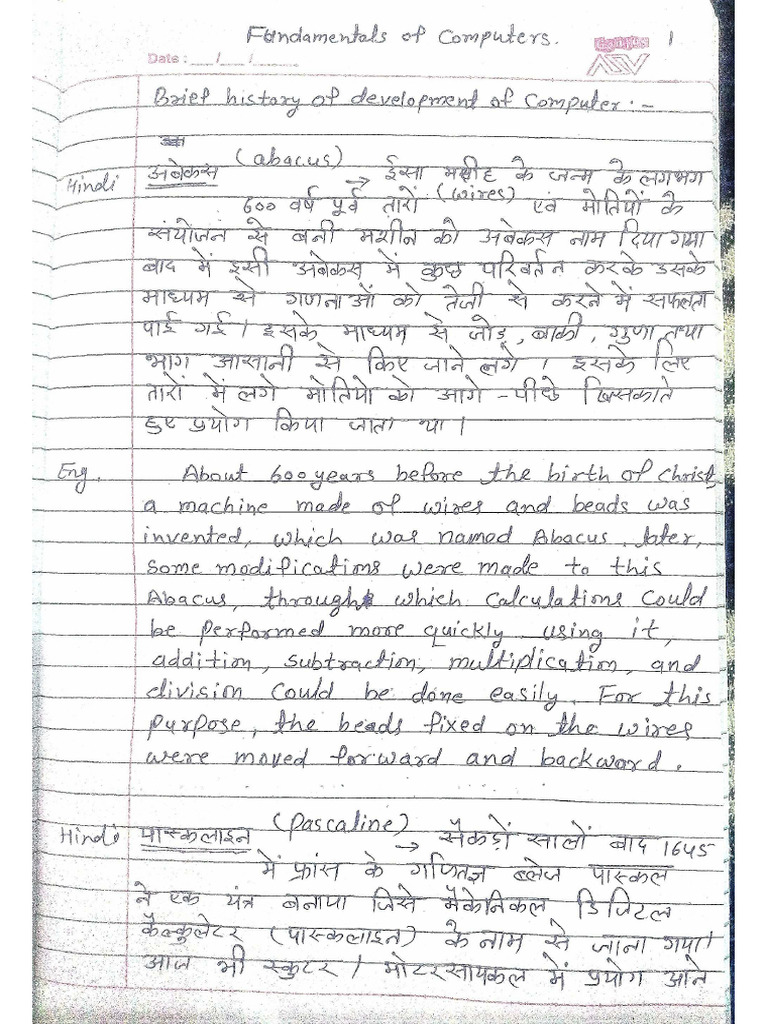 Fundamentals of Computers.
1
Date : __/__/____
Brief history of development of Computer :-
Hindi अबेकस (abacus) → ईसा मसीह के जन्म के लगभग
600 वर्ष पूर्व तारों (wires) एवं मोतियों के
संयोजन से बनी मशीन को अबेकस नाम दिया गया
बाद में इसी अबेकस में कुछ परिवर्तन करके उसके
माध्यम से गणनाओं को तेजी से करने में सफलता
पाई गई। इसके माध्यम से जोड़, बाकी, गुणा तथा
भाग आसानी से किए जाने लगे। इसके लिए
तारों में लगे मोतियो को आगे - पीछे खिसकाते
हुए प्रयोग किया जाता था।
Eng. About 600 years before the birth of Christ,
a machine made of wires and beads was
invented, which was named Abacus. later,
some modifications were made to this
Abacus, through which Calculations Could
be performed more quickly using it,
addition, subtraction, multiplication, and
division Could be done easily. For this
purpose, the beads fixed on the wires
were moved forward and backward.
Hindi पास्कलाइन (Pascaline) → सैकड़ों सालों बाद 1645
में फ्रांस के गणितज्ञ ब्लेज पास्कल
ने एक यंत्र बनाया जिसे मैकेनिकल डिजिटल
कैल्कुलेटर (पास्कलाइन) के नाम से जाना गया।
आज भी स्कुटर / मोटरसायकल में प्रयोग आने